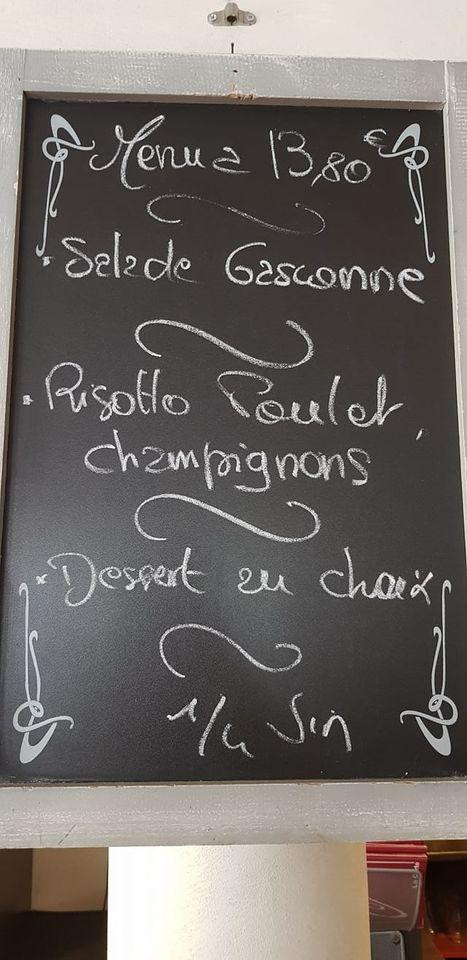 Menu a 13,80 €
Salade Gasconne
Risotto Poulet,
champignons
Dessert au choix
1/4 Vin
La Carte